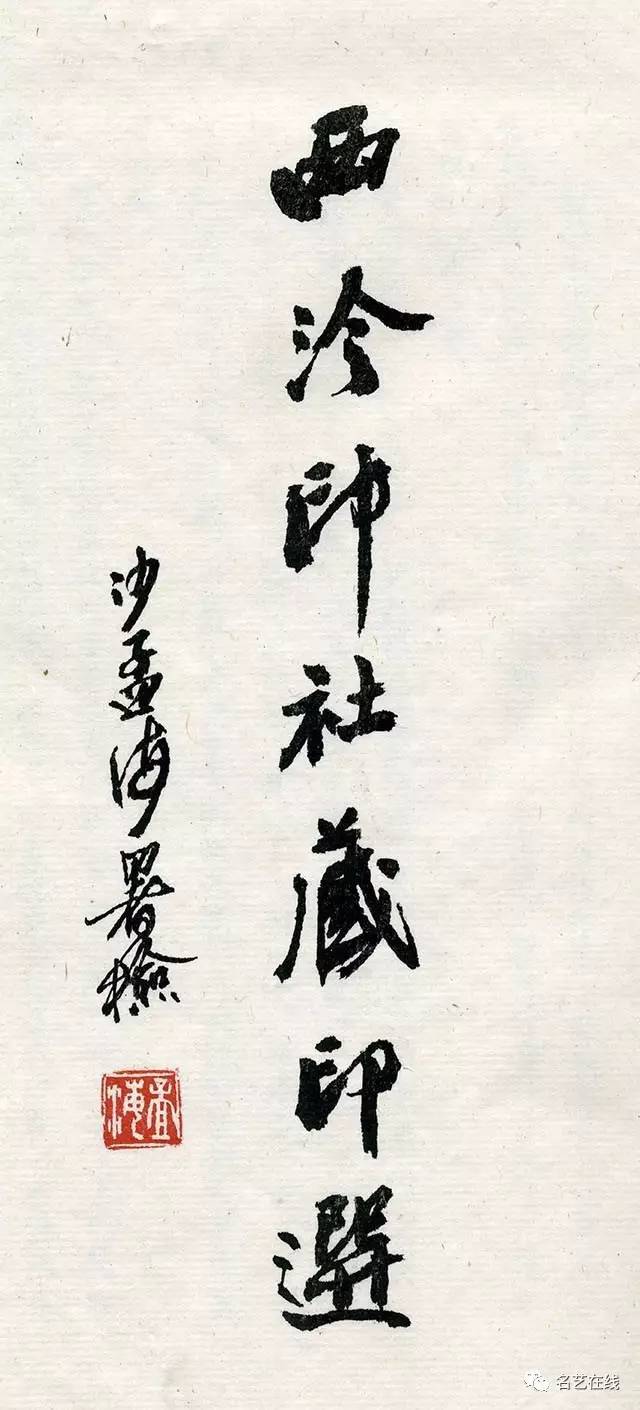 西泠印社藏印選
沙孟海署檢
孟海
名艺在线